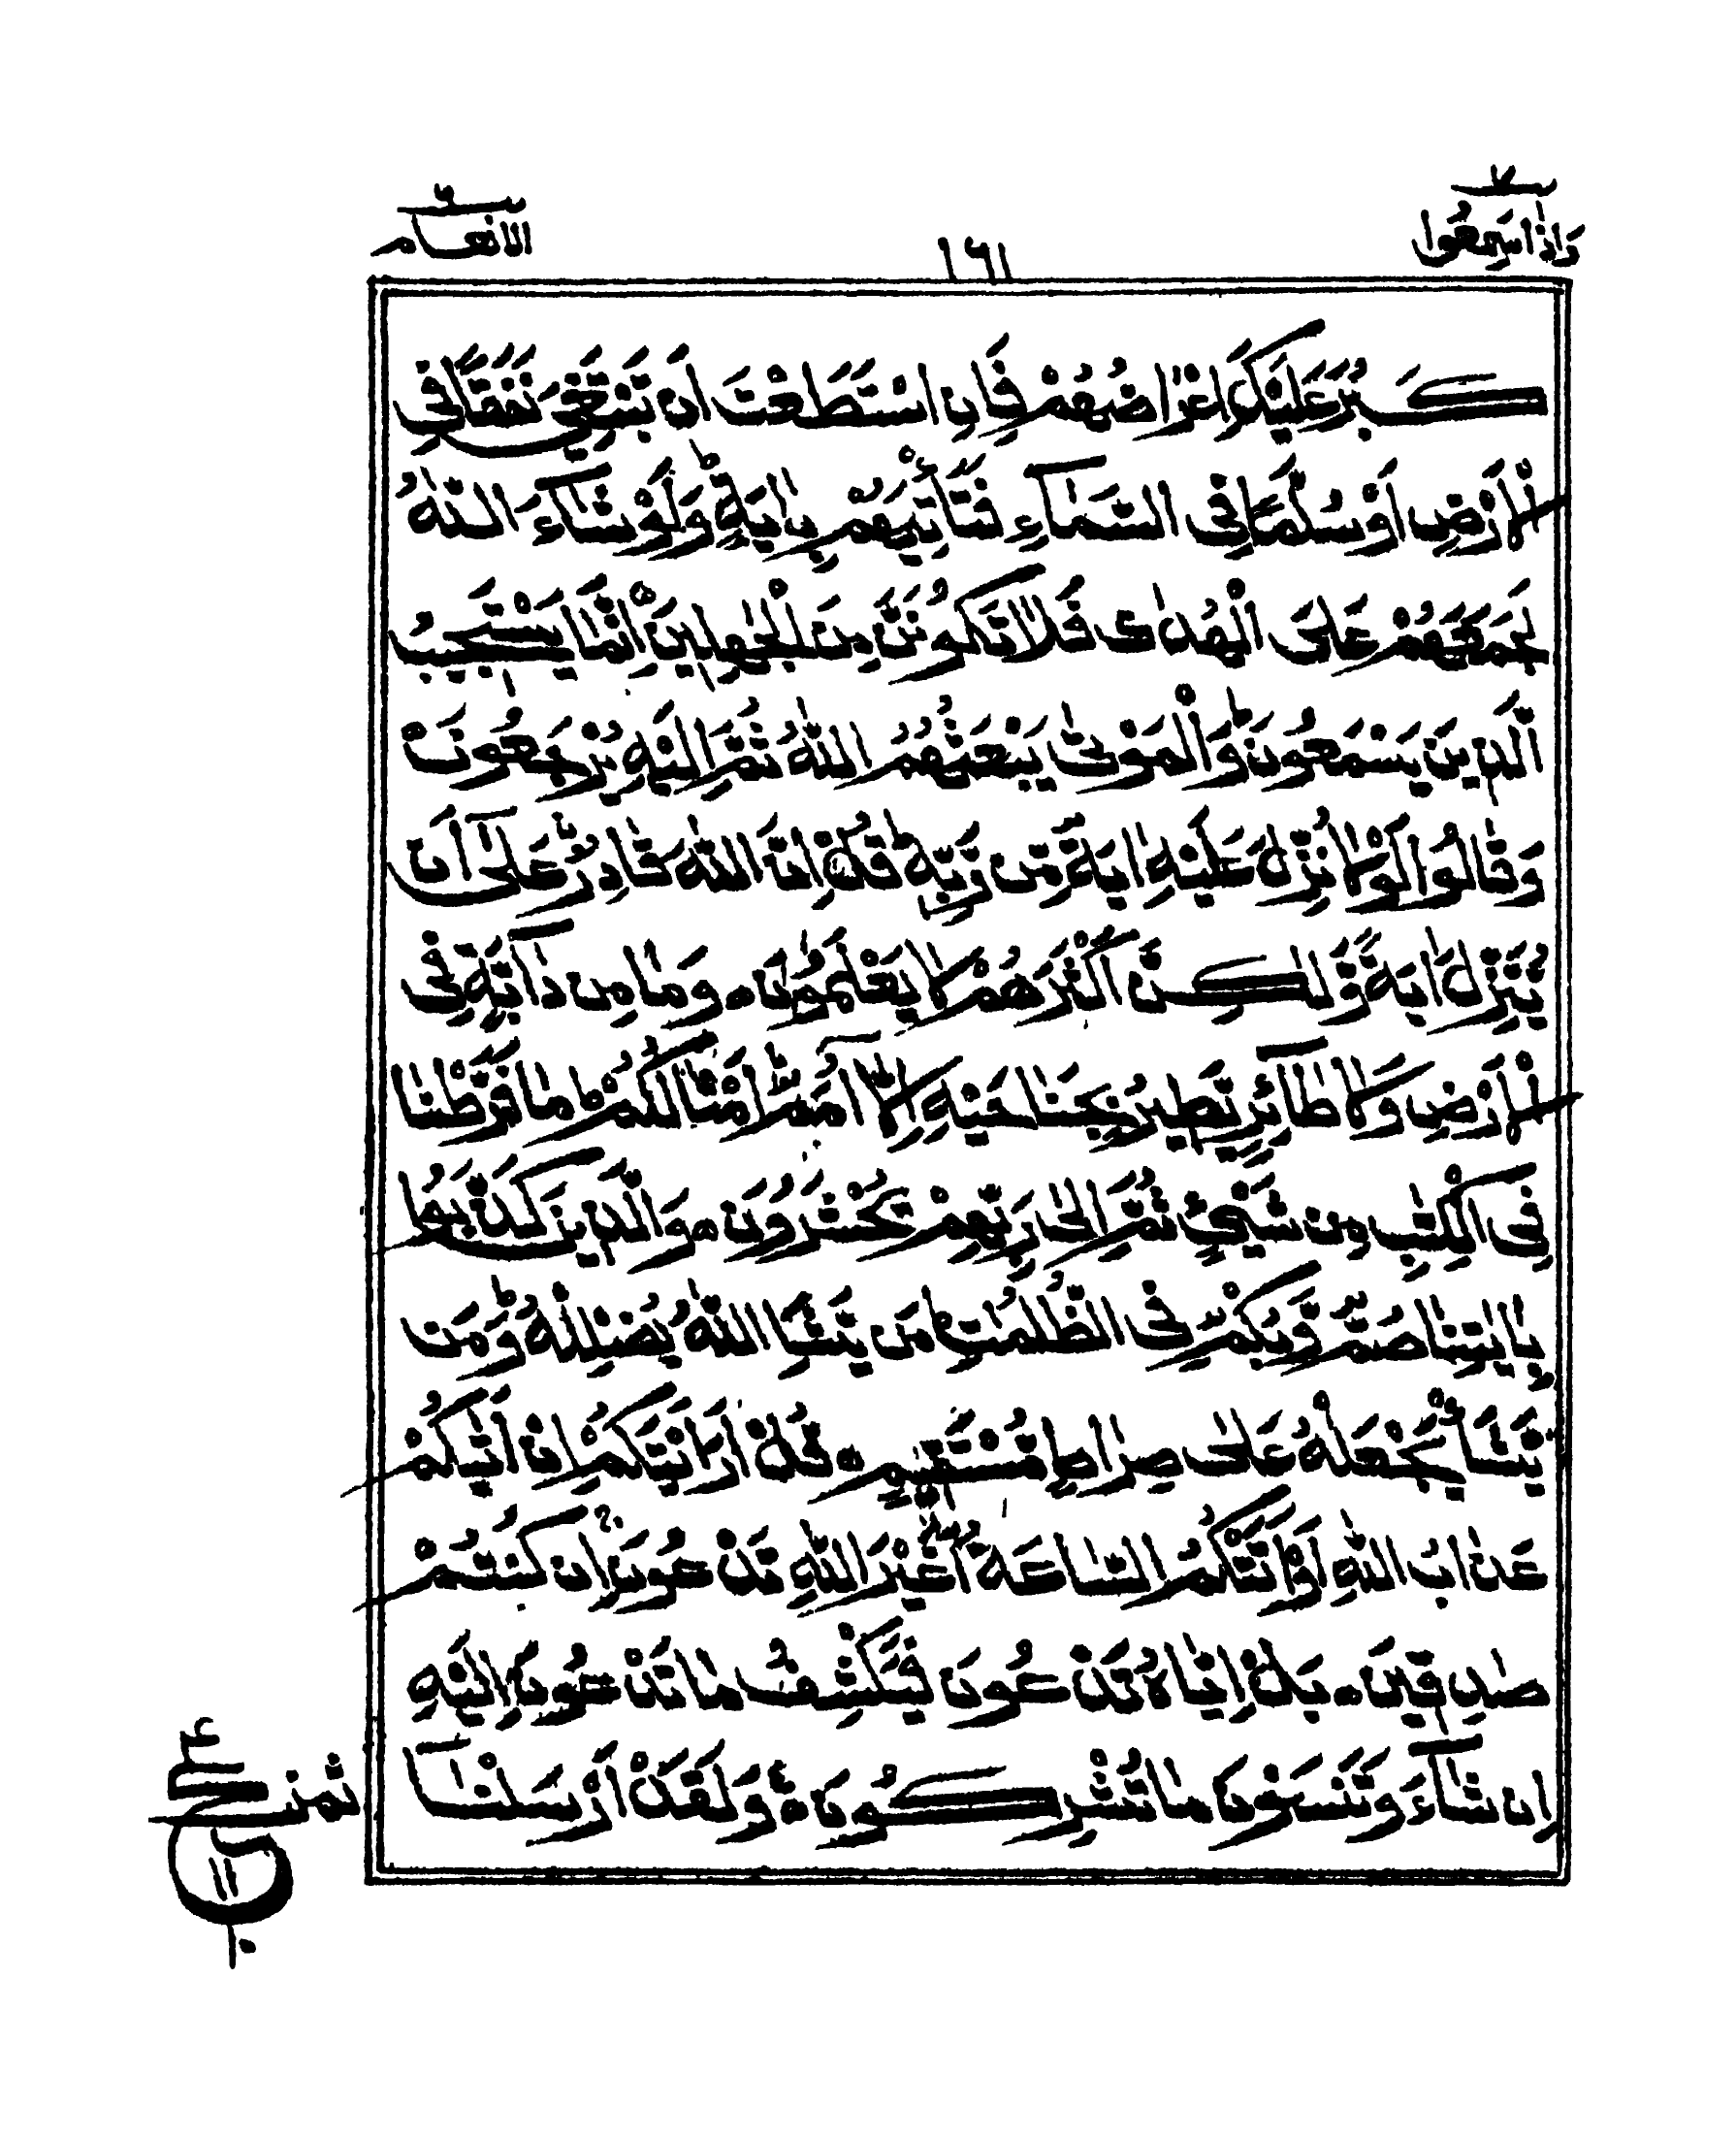 وَاِذَا سَمِعُوا ٧
١٦١
الانعام ٦
كَبُرَ عَلَيْكَ اِعْرَاضُهُمْ فَاِنِ اسْتَطَعْتَ اَنْ تَبْتَغِيَ نَفَقًا فِي
الْاَرْضِ اَوْ سُلَّمًا فِي السَّمَآءِ فَتَأْتِيَهُمْ بِاٰيَةٍ ؕ وَلَوْ شَآءَ اللّٰهُ
لَجَمَعَهُمْ عَلَى الْهُدٰى فَلَا تَكُوْنَنَّ مِنَ الْجٰهِلِيْنَ ۞ اِنَّمَا يَسْتَجِيْبُ
الَّذِيْنَ يَسْمَعُوْنَ ؕ وَالْمَوْتٰى يَبْعَثُهُمُ اللّٰهُ ثُمَّ اِلَيْهِ يُرْجَعُوْنَ ۞
وَقَالُوْا لَوْلَا نُزِّلَ عَلَيْهِ اٰيَةٌ مِّنْ رَّبِّهٖ ؕ قُلْ اِنَّ اللّٰهَ قَادِرٌ عَلٰٓى اَنْ
يُّنَزِّلَ اٰيَةً وَّلٰكِنَّ اَكْثَرَهُمْ لَا يَعْلَمُوْنَ ۞ وَمَا مِنْ دَآبَّةٍ فِي
الْاَرْضِ وَلَا طٰٓئِرٍ يَّطِيْرُ بِجَنَاحَيْهِ اِلَّآ اُمَمٌ اَمْثَالُكُمْ ؕ مَا فَرَّطْنَا
فِي الْكِتٰبِ مِنْ شَيْءٍ ثُمَّ اِلٰى رَبِّهِمْ يُحْشَرُوْنَ ۞ وَالَّذِيْنَ كَذَّبُوْا
بِاٰيٰتِنَا صُمٌّ وَّبُكْمٌ فِي الظُّلُمٰتِ ؕ مَنْ يَّشَاِ اللّٰهُ يُضْلِلْهُ ؕ وَمَنْ
يَّشَأْ يَجْعَلْهُ عَلٰى صِرَاطٍ مُّسْتَقِيْمٍ ۞ قُلْ اَرَءَيْتَكُمْ اِنْ اَتٰىكُمْ
عَذَابُ اللّٰهِ اَوْ اَتَتْكُمُ السَّاعَةُ اَغَيْرَ اللّٰهِ تَدْعُوْنَ ۚ اِنْ كُنْتُمْ
صٰدِقِيْنَ ۞ بَلْ اِيَّاهُ تَدْعُوْنَ فَيَكْشِفُ مَا تَدْعُوْنَ اِلَيْهِ
اِنْ شَآءَ وَتَنْسَوْنَ مَا تُشْرِكُوْنَ ۞ وَلَقَدْ اَرْسَلْنَآ
ثمن
ع
١١